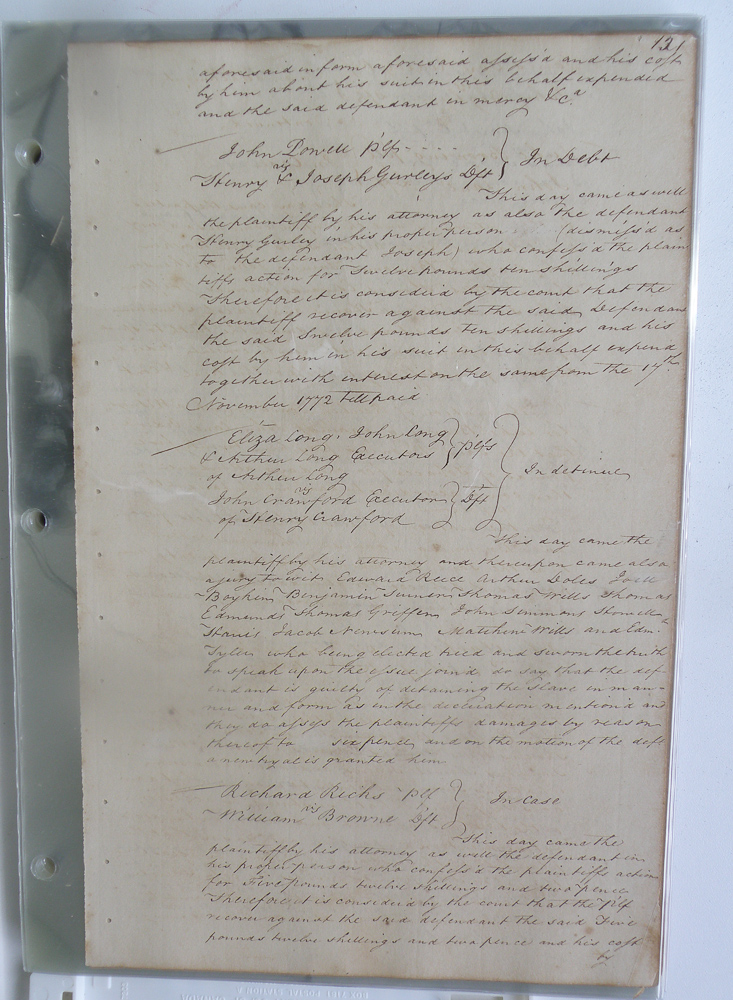 121
aforesaid in form aforesaid assess'd and his cost
by him about his suit in this behalf expended
and the said defendant in mercy &c.a
John Powell plf - - - -
vs
Henry & Joseph Gurleys Dft } In Debt
This day came as well
the plaintiff by his attorney as also the defendant
Henry Gurley in his proper person (dismiss'd as
to the defendant Joseph) who confess'd the plain
tiffs action for Twelve pounds ten shillings
Therefore it is consider'd by the court that the
plaintiff recover against the said Defendant
the said Twelve pounds ten shillings and his
cost by him in his suit in this behalf expend
together with interest on the same from the 17th
November 1772 till paid
Eliza Long, John Long
& Arthur Long Executors } plfs
of Arthur Long
vs
John Crawford Executor } Dft } In detinue
of Henry Crawford
This day came the
plaintiff by his attorney and thereupon came also
a jury to wit, Edward Reece Arthur Doles
Boykin Benjamin Turner Thomas Wills Thomas
Edmunds Thomas Griffin John Simmons Howell
Jacob Newsum Matthew Wills and Edm.d
Tyler who being elected tried and sworn the truth
to speak upon the issue join'd do say that the def
endant is guilty of detaining the Slave in man-
ner and form as in the declaration mention'd and
they do assess the plaintiffs damages by reason
thereof to six pence and on the motion of the deft
a new tryal is granted him
Richard Ricks plf
vs
William Browne Dft } In Case
This day came the
plaintiff by his attorney as well the defendant in
his proper person who confess'd the plaintiffs action
for Five pounds twelve shillings and two pence
Therefore it is consider'd by the court that the plf
recover against the said defendant the said Five
pounds twelve shillings and two pence and his cost
by